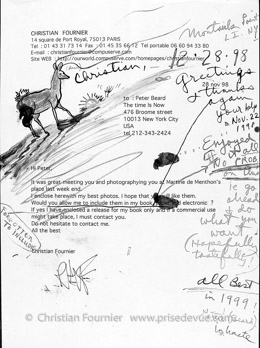 CHRISTIAN FOURNIER
14 square de Port Royal, 75013 PARIS
Tel : 01 43 31 73 14 Fax : 01 45 35 66 Tel portable 06 60 94 33 80
E-mail : christianfournier@compuserve.com
Site WEB : http://ourworld.compuserve.com/homepages/christianfournier
Montauk Point
L.I. N.Y.
12.28.98
Christian,
28 nov 98
Greetings
& thanks
again
your
Nov. 22
1998
to : Peter Beard
The time Is Now
476 Broome street
10013 New York City
USA
tel 212-343-2424
Enjoyed
on this
Hi Peter,
It was great meeting you and photographying you at Martine de Menthon's
place last week end.
I enclose herewith my best photos. I hope that you will like them.
Would you allow me to include them in my book electronic ?
If yes I have enclosed a release for my book only and if a commercial use
might take place, I must contact you.
Do not hesitate to contact me.
All the best
go
ahead
do
what
you
want
(Hopefully
tastefully)
Christian Fournier
all Best
in 1999!
© Christian Fournier www.prisedevue.com